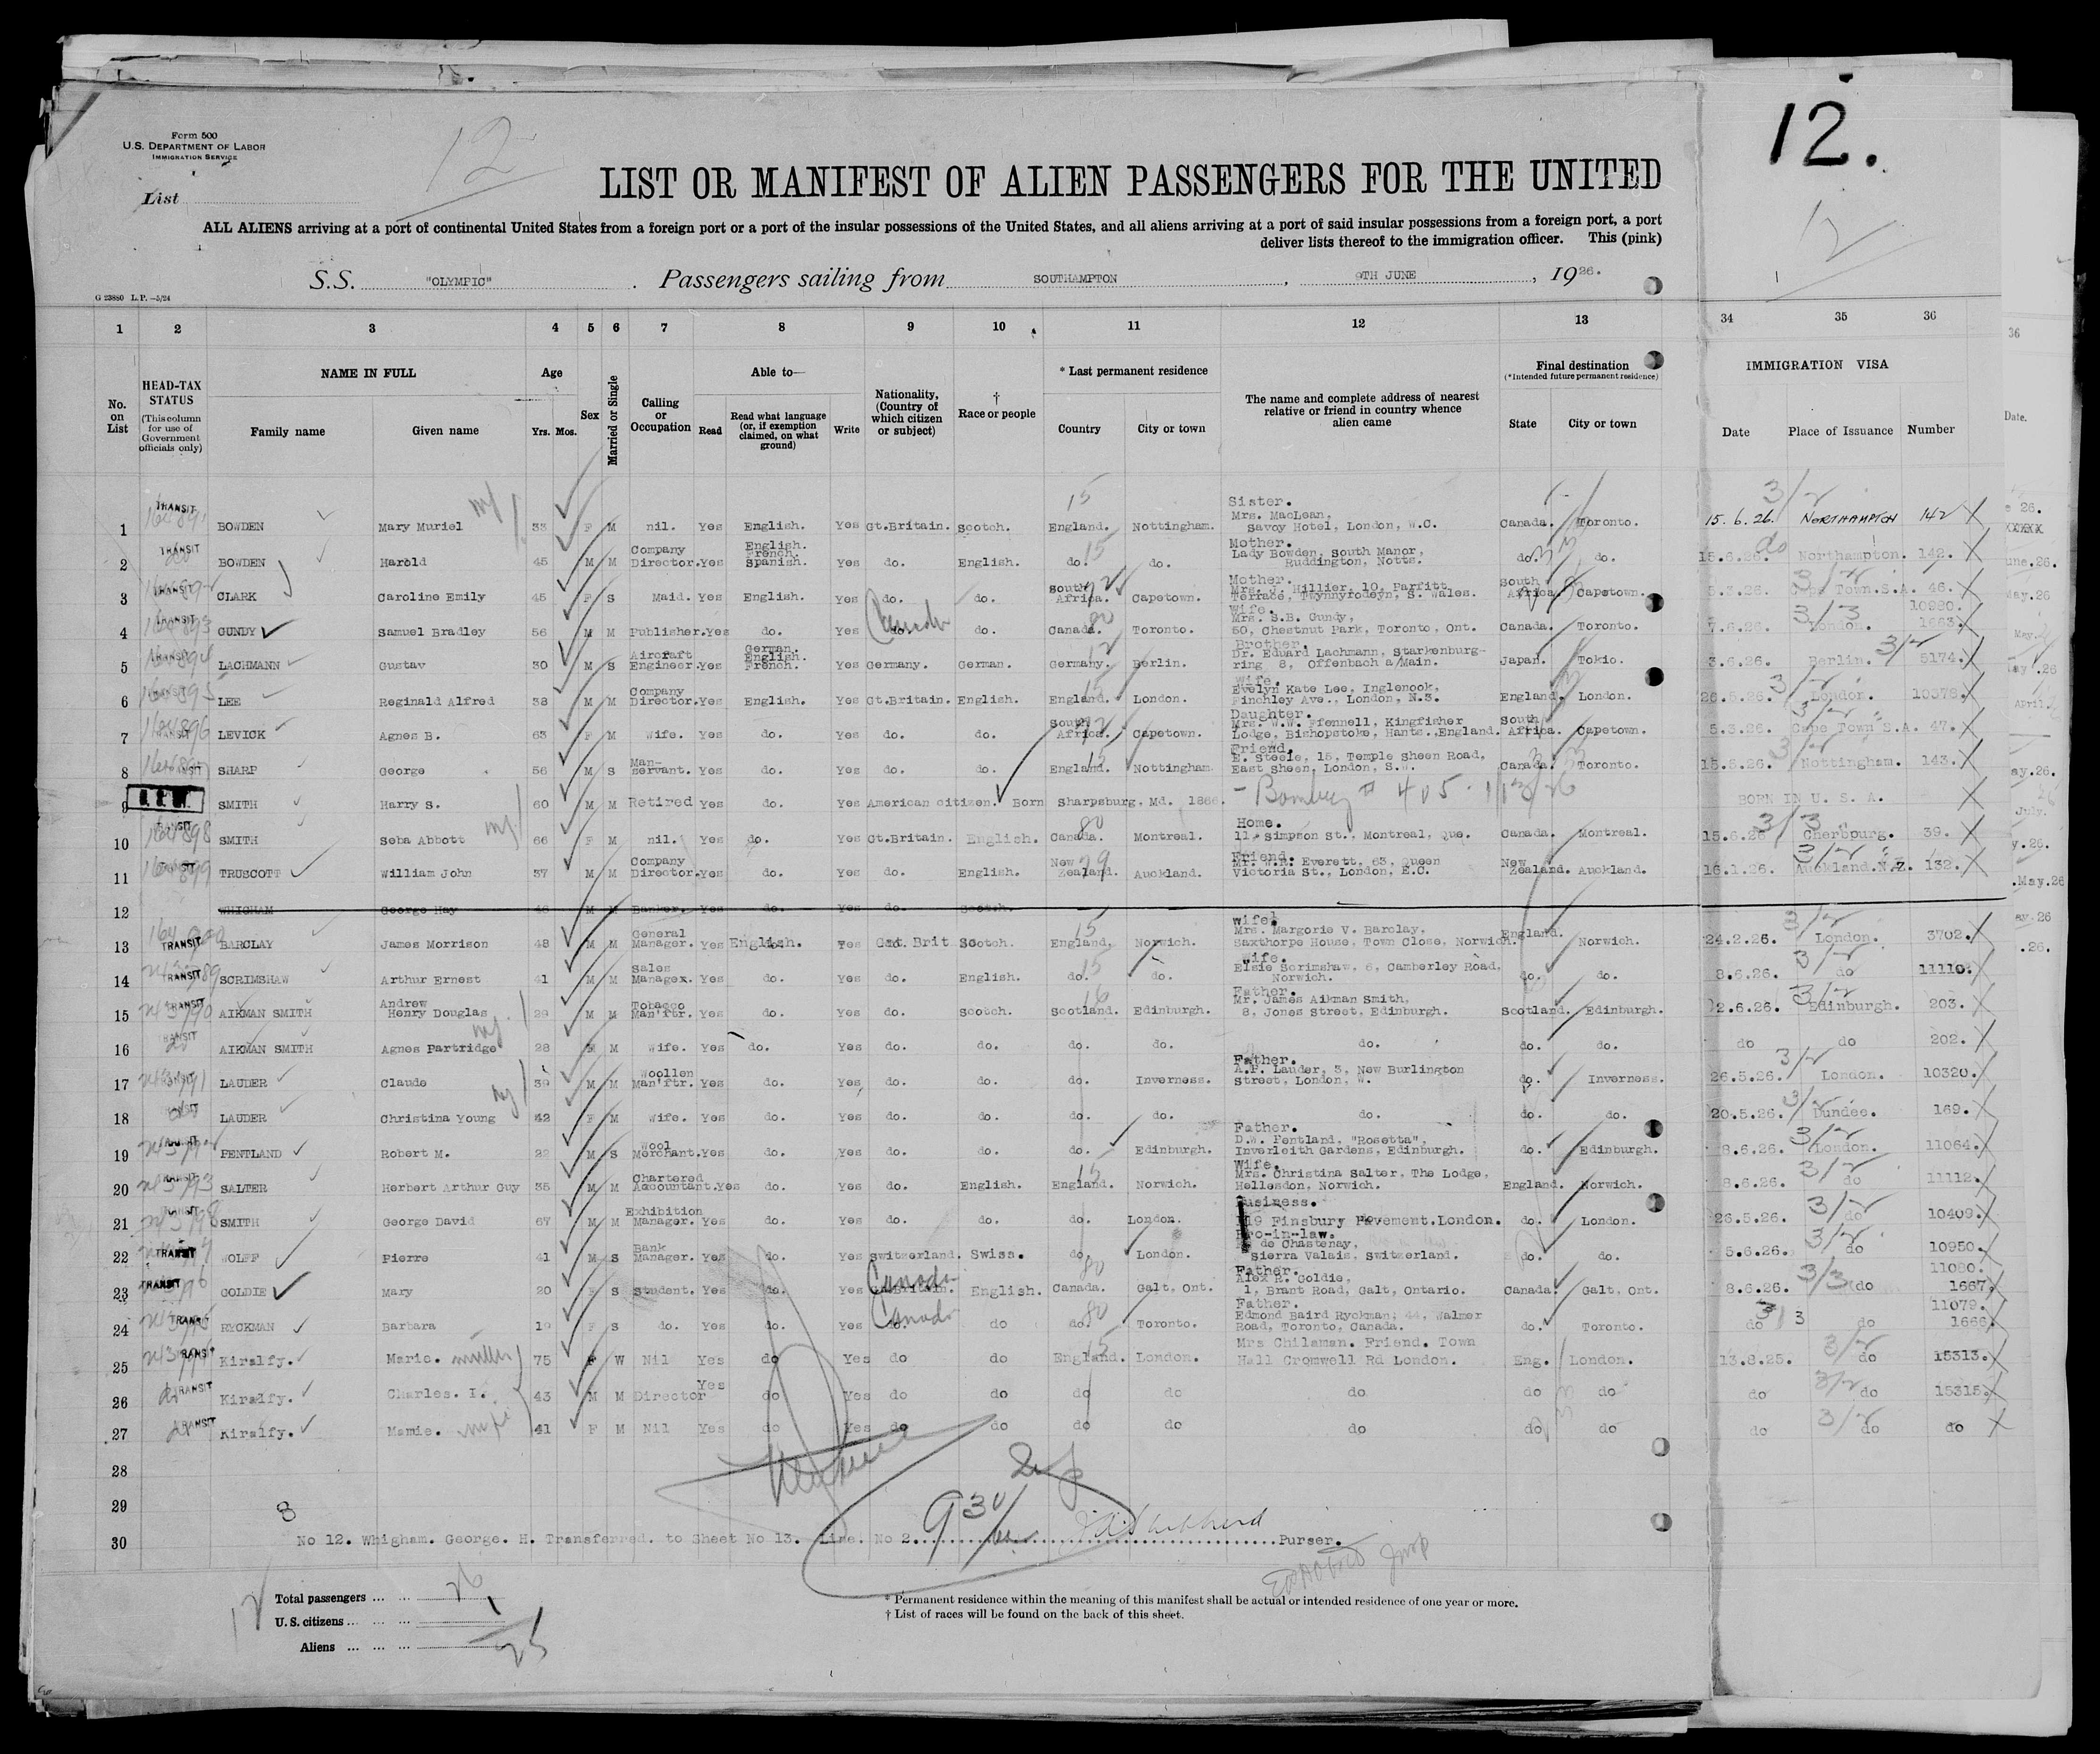 Form 500
U.S. DEPARTMENT OF LABOR
IMMIGRATION SERVICE
List
12
12.
12
LIST OR MANIFEST OF ALIEN PASSENGERS FOR THE UNITED
ALL ALIENS arriving at a port of continental United States from a foreign port or a port of the insular possessions of the United States, and all aliens arriving at a port of said insular possessions from a foreign port, a port
deliver lists thereof to the immigration officer. This (pink)
S.S. "OLYMPIC" . Passengers sailing from SOUTHAMPTON , 9TH JUNE , 1926.
G 23880 L.P.—5/24
1 2 3 4 5 6 7 8 9 10 11 12 13 34 35 36
No. on List
HEAD-TAX STATUS (This column for use of Government officials only)
NAME IN FULL Family name Given name
Age Yrs. Mos.
Sex
Married or Single
Calling or Occupation
Able to— Read Read what language (or, if exemption claimed, on what ground) Write
Nationality, (Country of which citizen or subject)
† Race or people
* Last permanent residence Country City or town
The name and complete address of nearest relative or friend in country whence alien came
Final destination (*Intended future permanent residence) State City or town
IMMIGRATION VISA Date Place of Issuance Number
1 TRANSIT BOWDEN Mary Muriel 33 F M nil. Yes English. Yes Gt.Britain. Scotch. England. Nottingham. Sister. Mrs. MacLean, Savoy Hotel, London, W.C. Canada. Toronto. 15.6.26. NORTHAMPTON 142
2 TRANSIT BOWDEN Harold 45 M M Company Director. Yes English. French. Spanish. Yes do. English. do. do. Mother. Lady Bowden, South Manor, Ruddington, Notts. do. do. 15.6.26. Northampton. 142.
3 TRANSIT CLARK Caroline Emily 45 F S Maid. Yes English. Yes do. do. South Africa. Capetown. Mother. Mrs. J. Hillier, 10, Parfitt Terrace, Twynyrodyn, S. Wales. South Africa. Capetown. 5.3.26. Cape Town.S.A. 46.
4 GUNDY Samuel Bradley 56 M M Publisher. Yes do. Yes do. Canada do. Canada. Toronto. Wife. Mrs. S.B. Gundy, 50, Chestnut Park, Toronto, Ont. Canada. Toronto. 7.6.26. London. 10980. 1663.
5 TRANSIT LACHMANN Gustav 30 M S Aircraft Engineer. Yes German. English. French. Yes Germany. German. Germany. Berlin. Brother. Dr. Eduard Lachmann, Starkenburg-ring 8, Offenbach a/Main. Japan. Tokio. 3.6.26. Berlin. 5174.
6 LEE Reginald Alfred 38 M M Company Director. Yes English. Yes Gt.Britain. English. England. London. Wife. Evelyn Kate Lee, Inglenook, Finchley Ave., London, N.3. England. London. 26.5.26. London. 10378.
7 LEVICK Agnes B. 63 F M Wife. Yes do. Yes do. do. South Africa. Capetown. Daughter. Mrs. W.W. Ffennell, Kingfisher Lodge, Bishopstoke, Hants., England. South Africa. Capetown. 5.3.26. Cape Town S.A. 47.
8 SHARP George 56 M S Man-servant. Yes do. Yes do. do. England. Nottingham Friend. E. Steele, 15, Temple Sheen Road, East Sheen, London, S.W. Canada. Toronto. 15.6.26. Nottingham. 143.
9 SMITH Harry S. 60 M M Retired Yes do. Yes American citizen. Born Sharpsburg, Md. 1866. BORN IN U. S. A.
10 TRANSIT SMITH Seba Abbott 66 F M nil. Yes do. Yes Gt.Britain. English. Canada. Montreal. Home. 11. Simpson St., Montreal, Que. Canada. Montreal. 15.6.26 Cherbourg. 39.
11 TRUSCOTT William John 37 M M Company Director. Yes do. Yes do. English. New Zealand. Auckland. Friend. Mr. W.R. Everett, 63, Queen Victoria St., London, E.C. New Zealand. Auckland. 16.1.26. Auckland.N.Z. 132.
12 WHIGHAM George Hay 46 M M Banker. Yes do. Yes do. Scotch.
13 TRANSIT BARCLAY James Morrison 48 M M General Manager. Yes English. Yes Gt. Brit Scotch. England. Norwich. Wife. Mrs. Margorie V. Barclay, Saxthorpe House, Town Close, Norwich. England. Norwich. 24.2.26. London. 3702.
14 TRANSIT SCRIMSHAW Arthur Ernest 41 M M Sales Manager. Yes do. Yes do. English. do. do. Wife. Elsie Scrimshaw, 6, Camberley Road, Norwich. do. do. 8.6.26. do 11110.
15 TRANSIT AIKMAN SMITH Andrew Henry Douglas 29 M M Tobacco Man'ftr. Yes do. Yes do. Scotch. Scotland. Edinburgh. Father. Mr. James Aikman Smith, 8, Jones Street, Edinburgh. Scotland. Edinburgh. 2.6.26. Edinburgh. 203.
16 TRANSIT AIKMAN SMITH Agnes Partridge 28 F M Wife. Yes do. Yes do. do. do. do. do. do. do. do do 202.
17 LAUDER Claude 39 M M Woollen Man'ftr. Yes do. Yes do. do. do. Inverness. Father. A.P. Lauder, 3, New Burlington Street, London, W. do. Inverness. 26.5.26. London. 10320.
18 LAUDER Christina Young 42 F M Wife. Yes do. Yes do. do. do. do. do. do. do. 20.5.26. Dundee. 169.
19 PENTLAND Robert M. 22 M S Wool Merchant. Yes do. Yes do. do. do. Edinburgh. Father. D.W. Pentland, "Rosetta", Inverleith Gardens, Edinburgh. do. Edinburgh. 8.6.26. London. 11064.
20 TRANSIT SALTER Herbert Arthur Guy 35 M M Chartered Accountant. Yes do. Yes do. English. England. Norwich. Wife. Mrs. Christina Salter, The Lodge, Hellesdon, Norwich. England. Norwich. 8.6.26. do 11112.
21 SMITH George David 67 M M Exhibition Manager. Yes do. Yes do. do. do. London. Business. 119 Finsbury Pavement.London. do. London. 26.5.26. do 10409.
22 TRANSIT WOLFF Pierre 41 M S Bank Manager. Yes do. Yes Switzerland. Swiss. do. London. Bro-in-law. de Chastenay, Sierra Valais, Switzerland. do. do. 5.6.26. do 10950.
23 TRANSIT GOLDIE Mary 20 F S Student. Yes do. Yes Canada English. Canada. Galt, Ont. Father. Alex R. Goldie, 1, Brant Road, Galt, Ontario. Canada. Galt, Ont. 8.6.26. do 11080. 1667.
24 TRANSIT RYCKMAN Barbara 19 F S do. Yes do. Yes Canada do. do do. Toronto. Father. Edmond Baird Ryckman, 44, Walmer Road, Toronto, Canada. do. Toronto. do do 11079. 1666.
25 TRANSIT Kiralfy. Marie. 75 F W Nil Yes do Yes do do England. London. Mrs Chilaman. Friend. Town Hall Cromwell Rd London. Eng. London. 13.8.25. do 15313.
26 TRANSIT Kiralfy. Charles. I. 43 M M Director Yes do Yes do do do do do do do do do 15315.
27 TRANSIT Kiralfy. Mamie. 41 F M Nil Yes do Yes do do do do do do do do do do
28
29
30 No 12. Whigham. George. H. Transferred. to Sheet No 13. Line. No 2. Purser.
930
Total passengers 26
U. S. citizens 1
Aliens 25
* Permanent residence within the meaning of this manifest shall be actual or intended residence of one year or more.
† List of races will be found on the back of this sheet.